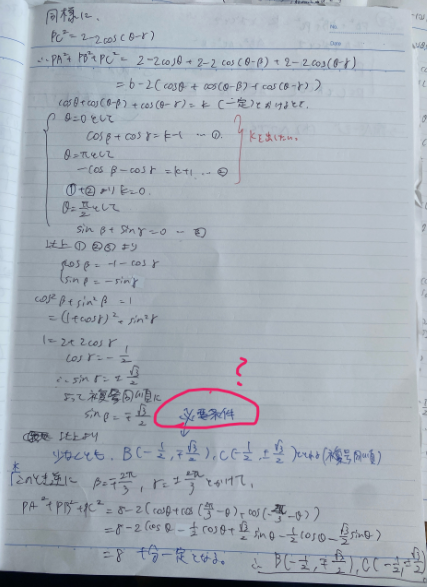 同様に、
PC² = 2-2cos(θ-γ)
∴PA²+PB²+PC² = 2-2cosθ+2-2cos(θ-β)+2-2cos(θ-γ)
= 6-2(cosθ+cos(θ-β)+cos(θ-γ))
cosθ+cos(θ-β)+cos(θ-γ) = k (一定)とおけて、
θ=0として
cosβ+cosγ=k-1 … ①
θ=πとして
-cosβ-cosγ=k+1 … ②
①+②よりk=0.
θ=π/2として
sinβ+sinγ=0 … ③
以上①②③より
cosβ=-1-cosγ
sinβ=-sinγ
cos²β+sin²β=1
=(1+cosγ)²+sin²γ
1=2+2cosγ
cosγ=-1/2
∴sinγ=±√3/2
よって複号同順に
sinβ=∓√3/2
必要条件
?
以上より
少なくとも、B(-1/2, ∓√3/2), C(-1/2, ±√3/2) (複号同順)
逆に β=∓2π/3, γ=±2π/3
PA²+PB²+PC² = 8-2(cosθ+cos(2π/3-θ)+cos(-2π/3-θ)
=8-2(cosθ-1/2cosθ+√3/2sinθ-1/2cosθ-√3/2sinθ)
=8 一定となる。∴B(-1/2, ∓√3/2), C(-1/2, ±√3/2)